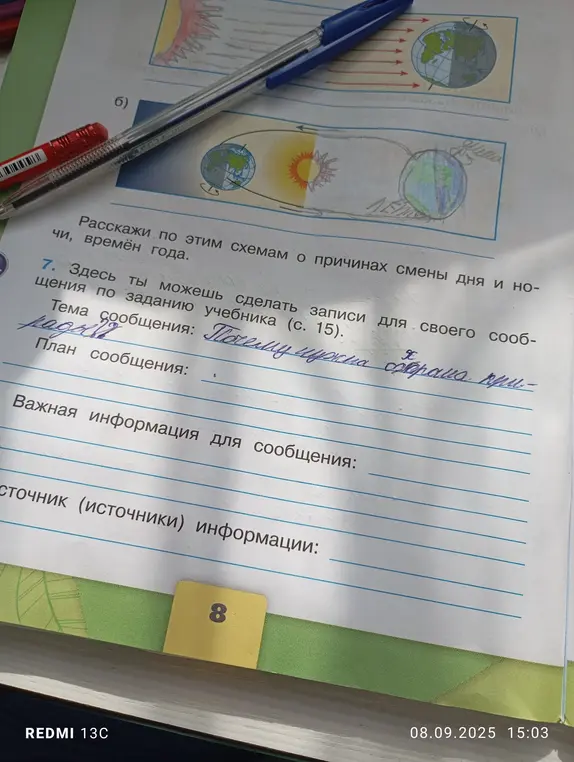 б)
Расскажи по этим схемам о причинах смены дня и но-
чи, времён года.
7. Здесь ты можешь сделать записи для своего сооб-
щения по заданию учебника (с. 15).
Тема сообщения: Почему нужна охрана при-
роды??
План сообщения:
Важная информация для сообщения:
сточник (источники) информации:
8
REDMI 13C
08.09.2025 15:03